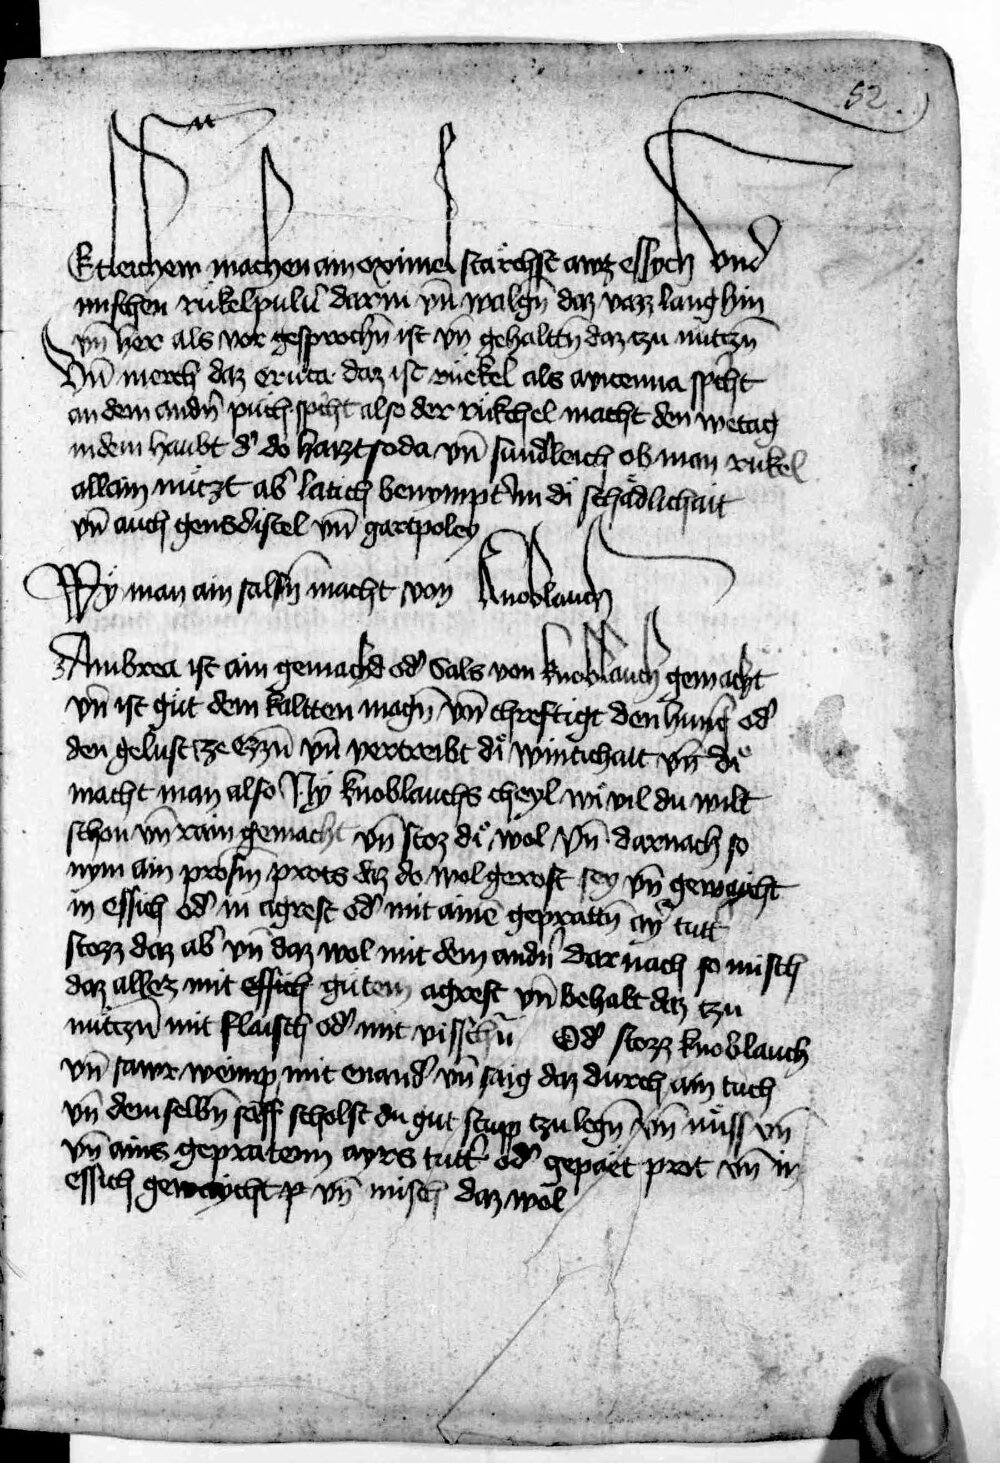 52
Etleichew machen ain oximel starchst awz essych vnd
mischen rukelpuluer darin vn̄ walgn̄ daz vazz lang hin
vn̄ her als vor gesprochn̄ ist vn̄ gehalttn̄ daz tzu nutczn̄
Vn̄ merch daz eruca daz ist rückel als auicenna spͥcht
an dem andn̄ püch spͥcht also der rükchel macht den wetag
in dem haubt dͥ do haizt soda vn̄ sundͥleich ob man rukel
allain nützt abͥ latich benympt im dï schädlichait
vn̄ auch gensdistel vn̄ gartpoley
Wy man ain salsn̄ macht von knoblauch
Ambrea ist ain gemachd odͥ sals von knoblauch gemacht
vn̄ ist güt dem kaltten magn̄ vn̄ chreftigt den hung̉ odͥ
den gelust ze ezzn̄ vn̄ vertreibt dï wintichait vn̄ dï
macht man also Ny knoblauchs cheyl wï vil du wilt
schon vn̄ rain gemacht vn̄ stoz dï wol vn̄ darnach so
nym ain prosm̄ prots daz do wol gerost sey vn̄ gewaycht
in essich odͥ in agrest odͥ mit ainē geprattn̄ ayͥ tuttͥ
stozz daz abͥ vn̄ daz wol mit dem andn̄ dar nach so misch
daz allez mit essich gütem agrest vn̄ behalt daz tzu
nutczn̄ mit flaisch odͥ mit visschn̄ Odͥ stozz knoblauch
vn̄ sawr weimp mit enandͥ vn̄ saig daz durch ain tuch
vn̄ dem selbn̄ saff scholst du gut stupp tzu legn̄ vn̄ nüss vn̄
vn̄ ains gepratenn ayrs tuttͥ odͥ gepäet prot vn̄ in
essich gewaycht vn̄ misch daz wol